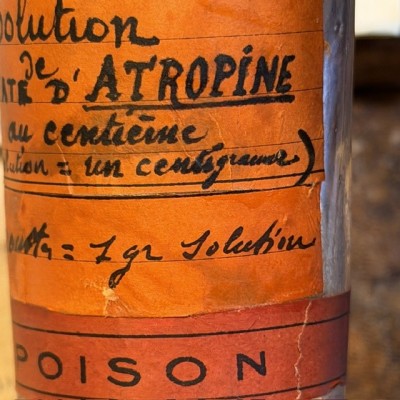 olution
de
ATE D'ATROPINE
au centième
lution = un centigramme)
= 1 gr Solution
POISON